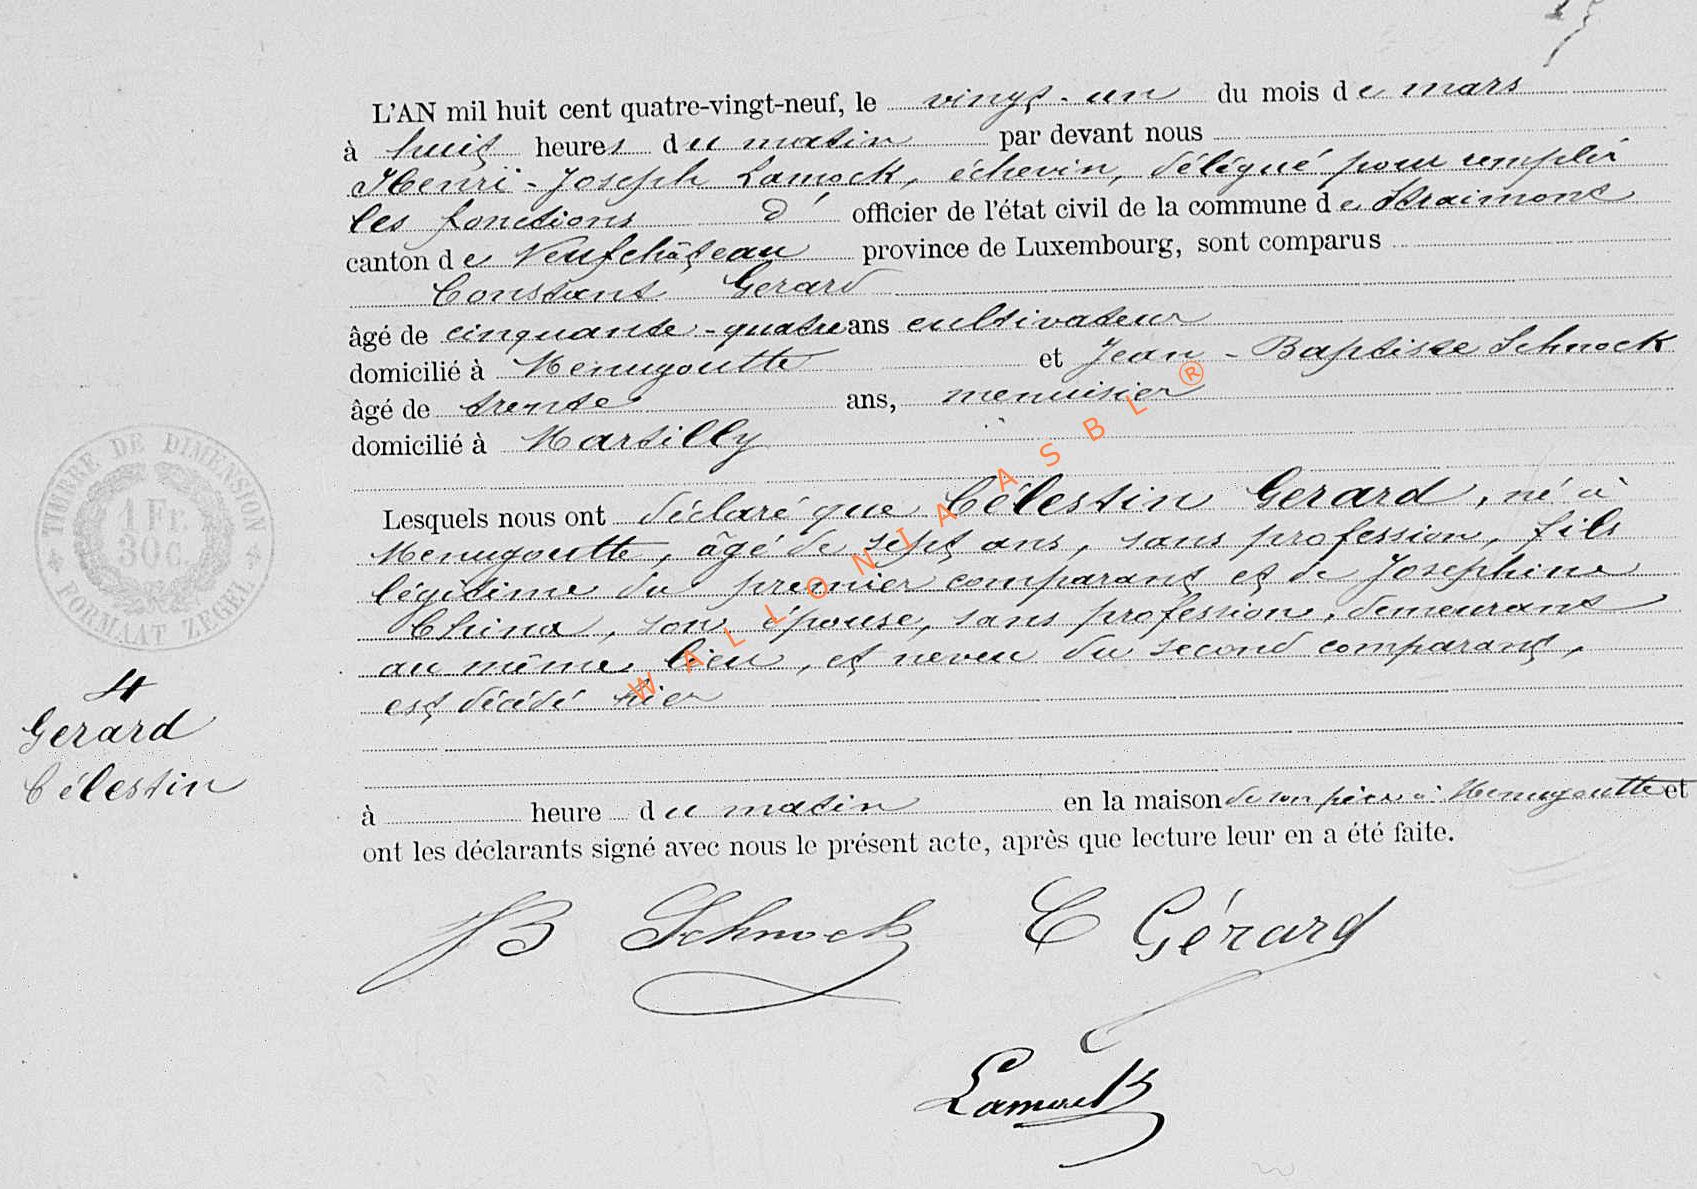 L'AN mil huit cent quatre-vingt-neuf, le vingt-un du mois de mars
à huit heures du matin par devant nous
Henri-Joseph Lamock, échevin, délégué pour remplir
les fonctions d' officier de l'état civil de la commune de Straimont
canton de Neufchâteau province de Luxembourg, sont comparus
Constant Gerard
âgé de cinquante-quatre ans cultivateur
domicilié à Menugoutte et Jean-Baptiste Schnock
âgé de trente ans, menuisier
domicilié à Martilly
Lesquels nous ont déclaré que Célestin Gerard, né à
Menugoutte, âgé de sept ans, sans profession, fils
légitime du premier comparant et de Joséphine
China, son épouse, sans profession, demeurant
au même lieu, et neveu du second comparant,
est décédé hier
à heure du matin en la maison de son père à Menugoutte et
ont les déclarants signé avec nous le présent acte, après que lecture leur en a été faite.
TIMBRE DE DIMENSION
1 Fr.
30 c.
FORMAAT ZEGEL
4
Gerard
Célestin
JB Schnock C Gérard
Lamock
WALLONIA ASBL ®